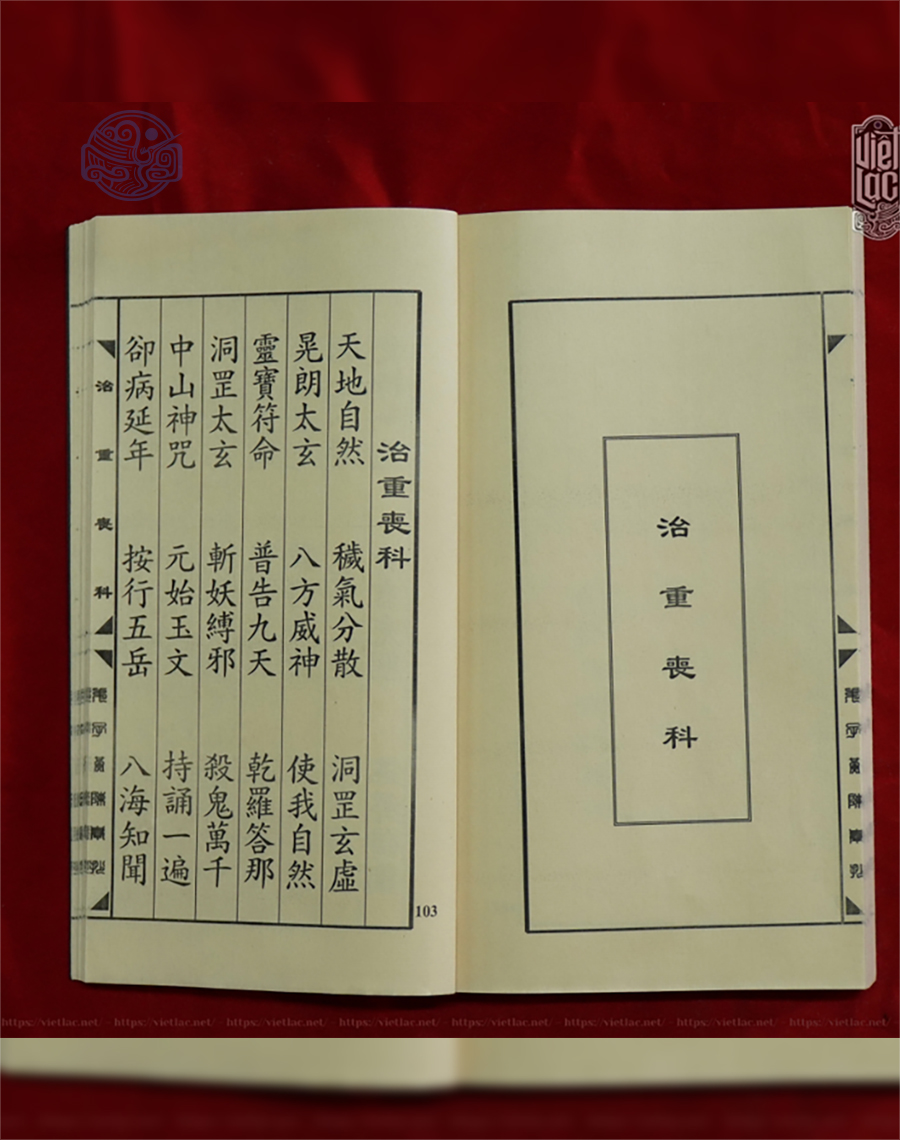 治重喪科
治重喪科
天地自然 穢氣分散 洞罡玄虛
晃朗太玄 八方威神 使我自然
靈寶符命 普告九天 乾羅答那
洞罡太玄 斬妖縛邪 殺鬼萬千
中山神咒 元始玉文 持誦一遍
卻病延年 按行五岳 八海知聞
治重喪科
103
Việt Lạc
https://vietlac.net/ - https://vietlac.net/ - https://vietlac.net/ - https://vietlac.net/ - https://vietlac.net/ - https://vietlac.net/ - https://vietlac.net/ - https://vietlac.net/